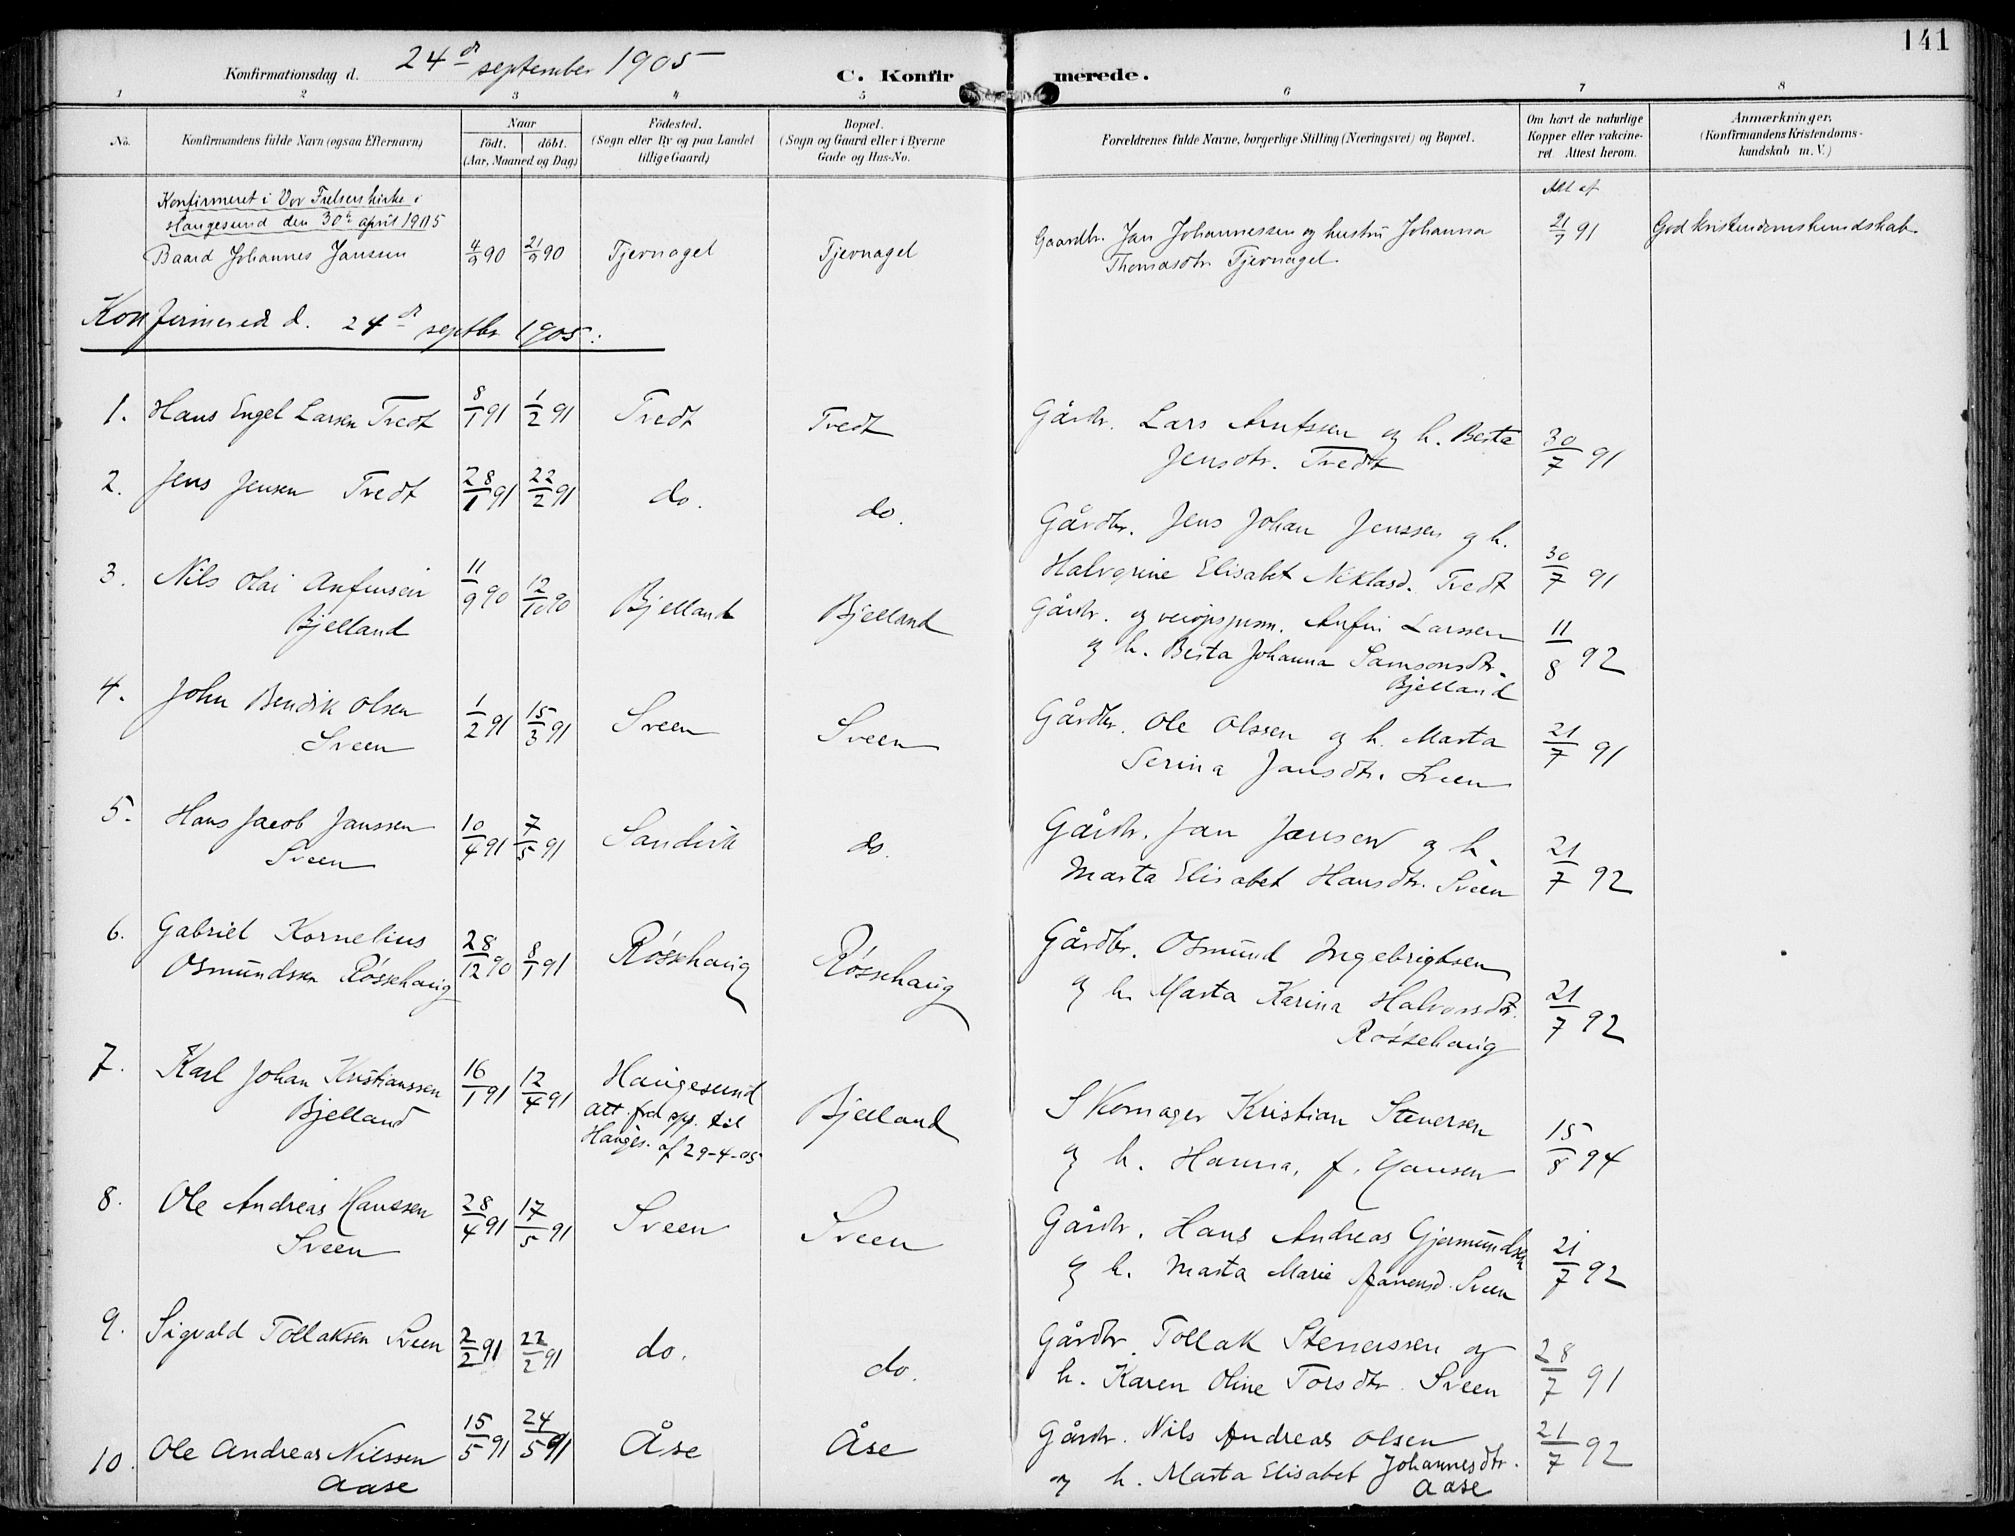 141
Konfirmationsdag d. 24de september 1905 C. Konfirmerede.
1 2 3 4 5 6 7 8
No. Konfirmandens fulde Navn (ogsaa Efternavn) Naar født. døbt. (Aar, Maaned og Dag) Fødested. (Sogn eller By og paa Landet tillige Gaard) Bopæl. (Sogn og Gaard eller i Byerne Gade og Hus-No. Forældrenes fulde Navne, borgerlige Stilling (Næringsvei) og Bopæl. Om havt de naturlige Kopper eller vakcineret. Attest herom. Anmærkninger. (Konfirmandens Kristendomskundskab m. V.)
Konfirmeret i Vor Frelsers kirke i
Haugesund den 30te april 1905
Baard Johannes Janssen 4/9 90 21/9 90 Tjernagel Tjernagel Gaardbr. Jan Johannessen og hustru Johanna Att af 21/7 91 God kristendomskundskab
Thomasdtr. Tjernagel.
Konfirmered d. 24de septbr 1905:
1. Hans Engel Larsen Tvedt 8/1 91 1/2 91 Tvedt Tvedt Gårdbr. Lars Arntssen og h. Berta 30/7 91
Jensdtr. Tvedt
2. Jens Jensen Tvedt 28/1 91 22/2 91 do. do. Gårdbr. Jens Johan Jenssen og h.
Halvarine Elisabet Niklasd. Tvedt 30/7 91
3. Nils Olai Anfinsen 11/9 90 12/10 90 Bjelland Bjelland Gårdbr. og Anfin Larssen 11/8 92
Bjelland og h. Berta Johanna Samsonsdtr.
Bjelland
4. John Bendik Olsen 1/2 91 15/3 91 Sveen Sveen Gårdbr. Ole Olssen og h. Marta 21/7 91
Sveen Serina Jansdtr. Sveen
5. Hans Jacob Janssen 10/4 91 7/5 91 Sandvik do. Gårdbr. Jan Jansen og h. 21/7 92
Sveen Marta Elisabet Hansdtr. Sveen
6. Gabriel Kornelius 28/12 90 8/1 91 Røssehaug Røssehaug Gårdbr. Osmund Ingebrigtsen
Osmundssen Røssehaug og h. Marta Karina Halvorsdtr. 21/7 92
Røssehaug
7. Karl Johan Kristianssen 16/1 91 12/4 91 Haugesund Bjelland Skomager Kristian Stenersen 15/8 94
Bjelland att. fra spr. til og h. Hanna, f. Hansen
Hauges. af 29-4-05
8. Ole Andreas Hanssen 28/4 91 17/5 91 Sveen Sveen Gårdbr. Hans Andreas Gjermundsen 21/7 92
Sveen og h. Marta Marie Sveen
9. Sigvald Tollaksen Sveen 2/2 91 22/2 91 do. do. Gårdbr. Tollak Stenerssen og 28/7 91
h. Karen Oline Torsdtr. Sveen
10. Ole Andreas Nilssen 15/5 91 24/5 91 Åse Åse Gårdbr. Nils Andreas Olsen 21/7 92
Aase og h. Marta Elisabet Johannesdtr.
Aase